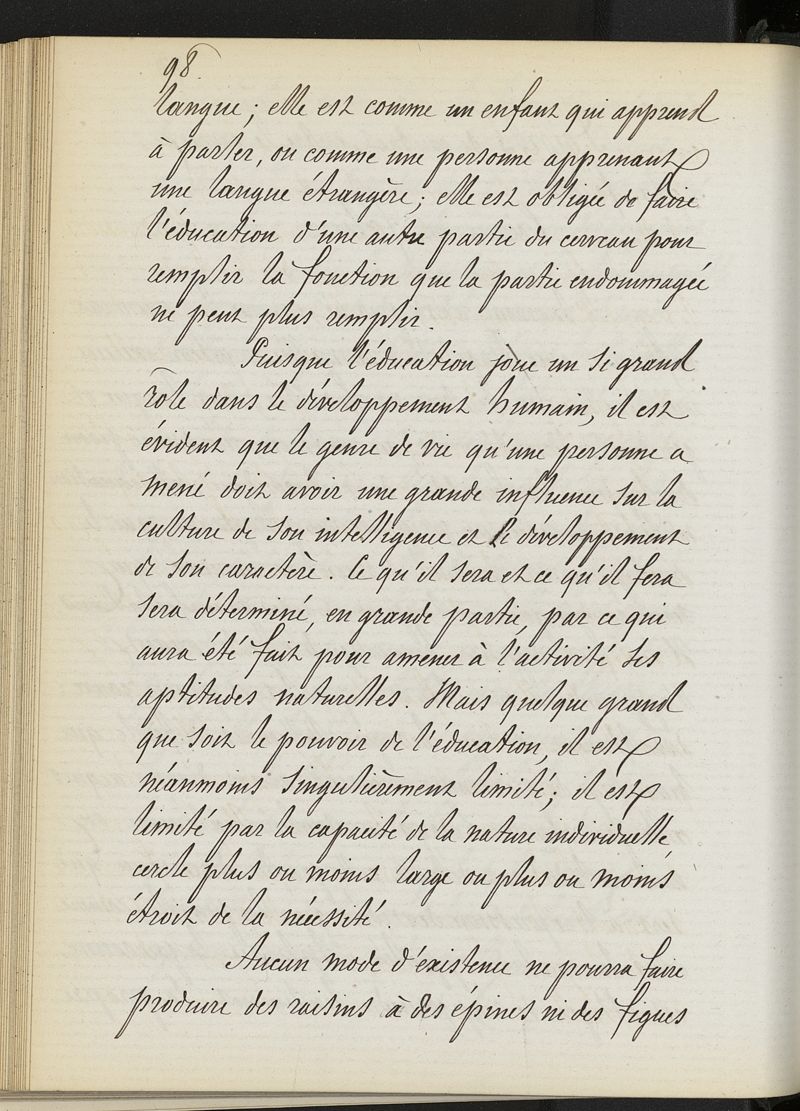 98.
langue; elle est comme un enfant qui apprend
à parler, ou comme une personne apprenant
une langue étrangère; elle est obligée de faire
l'éducation d'une autre partie du cerveau pour
remplir la fonction que la partie endommagée
ne peut plus remplir.
Puisque l'éducation joue un si grand
rôle dans le développement humain, il est
évident que le genre de vie qu'une personne a
mené doit avoir une grande influence sur la
culture de son intelligence et le développement
de son caractère. Ce qu'il sera et ce qu'il fera
sera déterminé, en grande partie, par ce qui
aura été fait pour amener à l'activité ses
aptitudes naturelles. Mais quelque grand
que soit le pouvoir de l'éducation, il est
néanmoins singulièrement limité; il est
limité par la capacité de la nature individuelle,
cercle plus ou moins large ou plus ou moins
étroit de la nécessité.
Aucun mode d'existence ne pourra faire
produire des raisins à des épines ni des figues